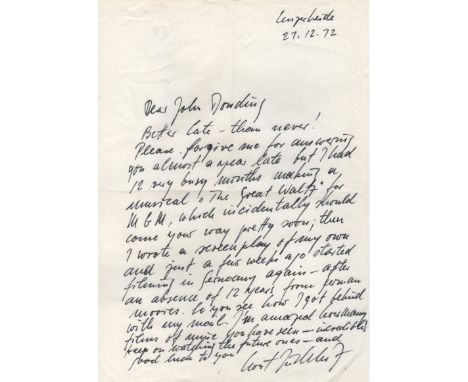 Lenzerheide
27.12.72
Dear John Dowding
Better late – than never!
Please forgive me for answering
you almost a year late but I had
12 very busy months making a
musical "The Great Waltz" for
MGM, which incidentally should
come your way pretty soon; then
I wrote a screenplay of my own
and just a few weeks ago started
filming in Germany again – after
an absence of 12 years from german
movies. So you see how I got behind
with my mail. I'm amazed how many
films of mine you have seen – incredible!
keep on watching the future ones – and
good luck to you